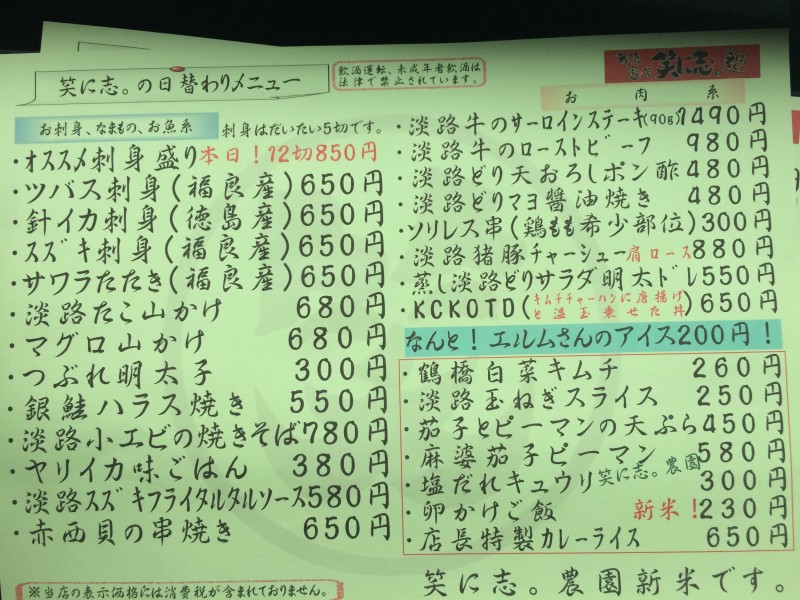 笑に志。の日替わりメニュー
飲酒運転、未成年者飲酒は
法律で禁止されています。
笑に志の郷
お刺身、なまもの、お魚系
刺身はだいたい5切です。
・オススメ刺身盛り本日!12切850円
・ツバス刺身(福良産)650円
・針イカ刺身(徳島産)650円
・スズキ刺身(福良産)650円
・サワラたたき(福良産)650円
・淡路たこ山かけ 680円
・マグロ山かけ 680円
・つぶれ明太子 300円
・銀鮭ハラス焼き 550円
・淡路小エビの焼きそば780円
・ヤリイカ味ごはん 380円
・淡路スズキフライタルタルソース580円
・赤西貝の串焼き 650円
※当店の表示価格には消費税が含まれておりません。
お肉系
・淡路牛のサーロインステーキ(90g)1490円
・淡路牛のローストビーフ 980円
・淡路どり天おろしポン酢 480円
・淡路どりマヨ醤油焼き 480円
・ソリレス串(鶏もも希少部位)300円
・淡路猪豚チャーシュー肩ロース880円
・蒸し淡路どりサラダ明太ドレ550円
・KCKOTD(キムチチャーハンに唐揚げ
と温玉乗せた丼)650円
なんと!エルムさんのアイス200円!
・鶴橋白菜キムチ 260円
・淡路玉ねぎスライス 250円
・茄子とピーマンの天ぷら450円
・麻婆茄子ピーマン 580円
・塩だれキュウリ笑に志。農園 300円
・卵かけご飯 新米!230円
・店長特製カレーライス 650円
笑に志。農園新米です。